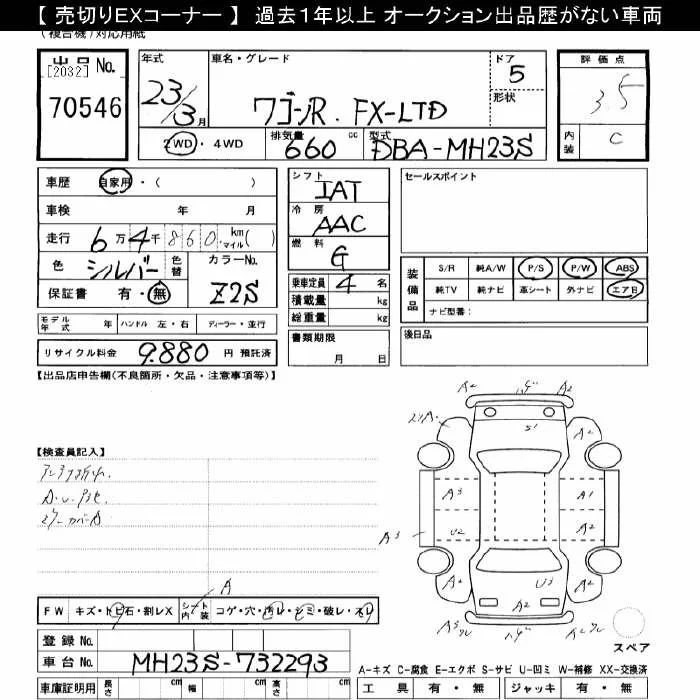 【 売切りEXコーナー 】 過去1年以上 オークション出品歴がない車両
(複合機)対応用紙
出品 No.
[2032]
70546
年式 23/3月
車名・グレード ワゴンR. FX-LTD
ドア 5
形状
評価点 3.5
内装 C
2WD・4WD
排気量 660 cc
型式 DBA-MH23S
車歴 自家用・( )
車検 年 月
走行 6万4千860 km マイル( )
色 シルバー 色替
カラーNo. Z2S
保証書 有・無
シフト IAT
冷房 AAC
燃料 G
乗車定員 4 名
積載量 kg
総重量 kg
書類期限
月 日
セールスポイント
装備品
S/R 純A/W P/S P/W ABS
純TV 純ナビ 革シート 外ナビ エアB
ナビ型番:
後日品
モデル年式 年 ハンドル 左・右 ディーラー・並行
リサイクル料金 9.880 円 預託済
【出品店申告欄(不良箇所・欠品・注意事項等)】
【検査員記入】
A2 A2
A2
S1
A3 A1
A3 U2 A2
A2 U3 A2
A2
A
FW キズ・トビ石・割レX シート内装 コゲ・穴・汚レ・シミ・破レ・スレ
登録 No.
車台 No. MH23S-732293
車庫証明用 長さ cm 幅 cm 高さ cm
スペア
A-キズ C-腐食 E-エクボ S-サビ U-凹ミ W-補修 XX-交換済
工具 有・無 ジャッキ 有・無